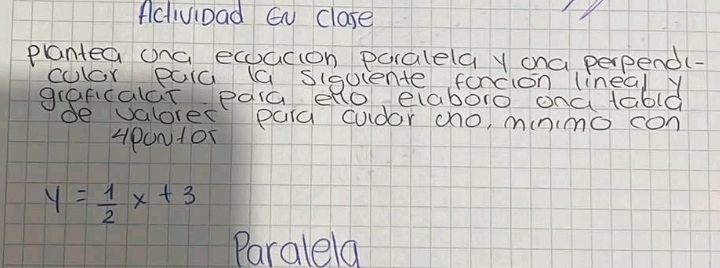 Actividad En clase
plantea una ecuacion paralela y una perpendi-
cular para la siguiente función lineal y
graficalar para ello elaboro una tabla
de valores para cuidar uno, minimo con
4puntos
y = 1/2 x + 3
Paralela